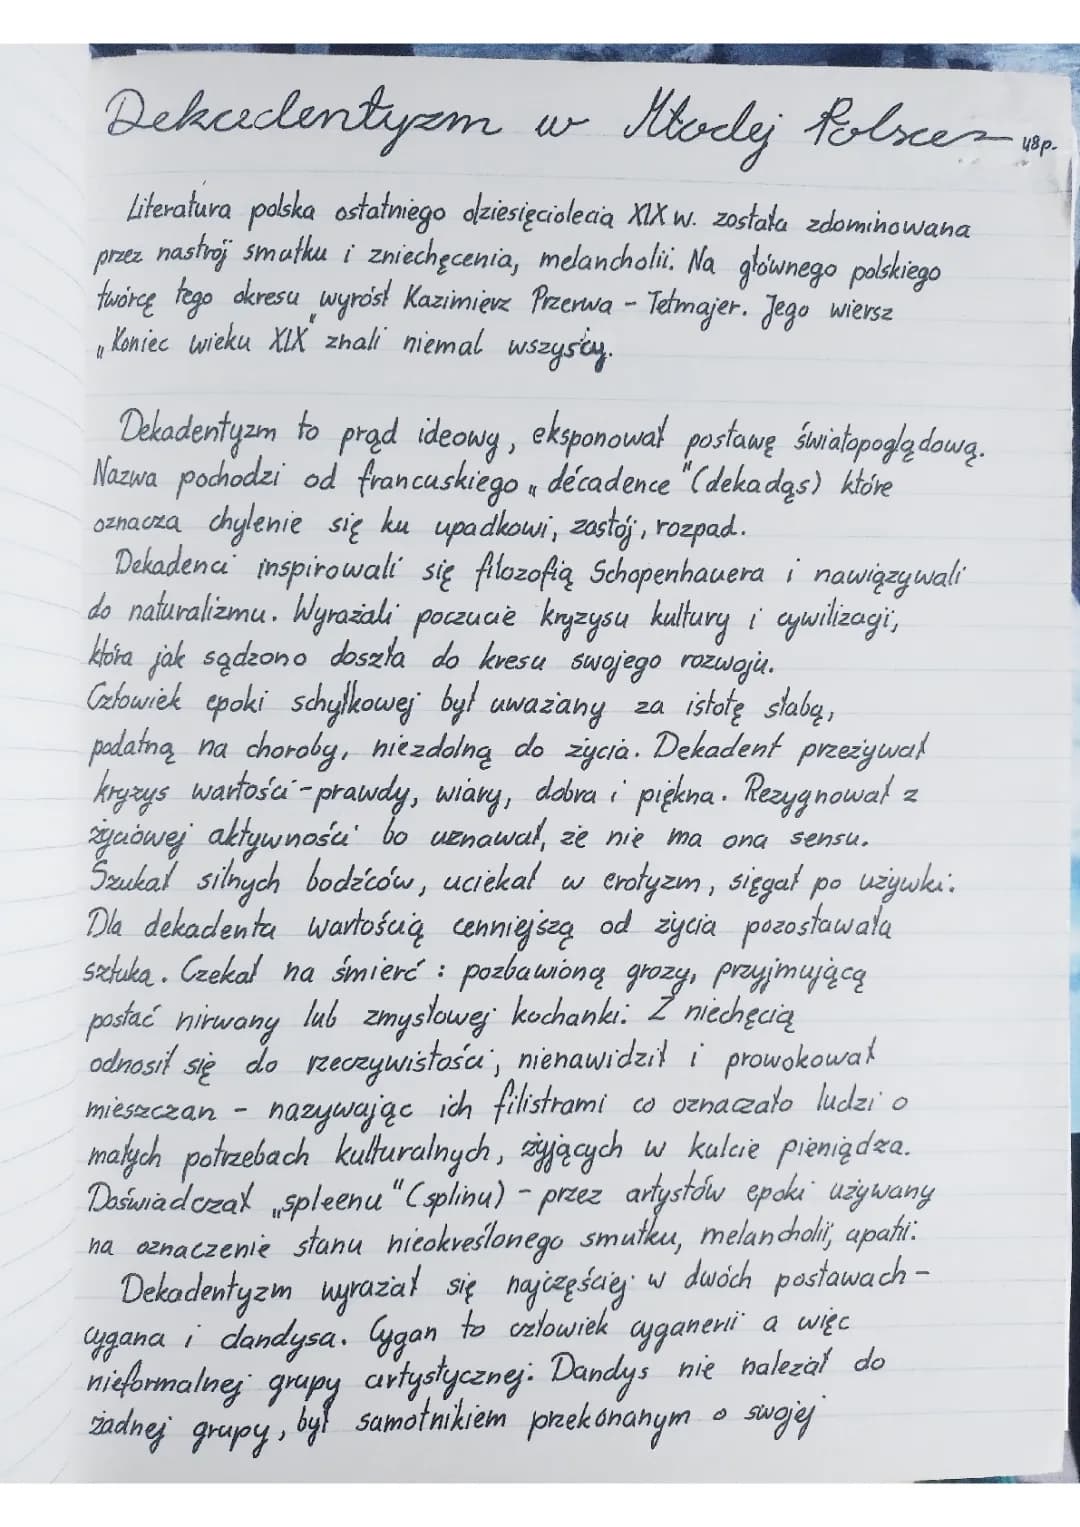 Dekadentyzm w Młodej Polsce 48p.
Literatura polska ostatniego dziesięciolecia XIX w. została zdominowana
przez nastrój smutku i zniechęcenia, melancholii. Na głównego polskiego
twórcę tego okresu wyrósł Kazimierz Przerwa - Tetmajer. Jego wiersz
„Koniec wieku XIX" znali niemal wszyscy.
Dekadentyzm to prąd ideowy, eksponował postawę światopoglądową.
Nazwa pochodzi od francuskiego „décadence" (dekadąs) które
oznacza chylenie się ku upadkowi, zastój, rozpad.
Dekadenci inspirowali się filozofią Schopenhauera i nawiązywali
do naturalizmu. Wyrażali poczucie kryzysu kultury i cywilizacji,
która jak sądzono doszła do kresu swojego rozwoju.
Człowiek epoki schyłkowej był uważany za istotę słabą,
podatną na choroby, niezdolną do życia. Dekadent przeżywał
kryzys wartości - prawdy, wiary, dobra i piękna. Rezygnował z
życiowej aktywności bo uznawał, że nie ma ona sensu.
Szukał silnych bodźców, uciekał w erotyzm, sięgał po używki.
Dla dekadenta wartością cenniejszą od życia pozostawała
sztuka. Czekał na śmierć : pozbawioną grozy, przyjmującą
postać nirwany lub zmysłowej kochanki. Z niechęcią
odnosił się do rzeczywistości, nienawidził i prowokował
mieszczan - nazywając ich filistrami co oznaczało ludzi o
małych potrzebach kulturalnych, żyjących w kulcie pieniądza.
Doświadczał „spleenu" (splinu) - przez artystów epoki używany
na oznaczenie stanu nieokreślonego smutku, melancholii, apatii.
Dekadentyzm wyrażał się najczęściej w dwóch postawach -
cygana i dandysa. Cygan to człowiek cyganerii a więc
nieformalnej grupy artystycznej. Dandys nie należał do
żadnej grupy, był samotnikiem przekonanym o swojej